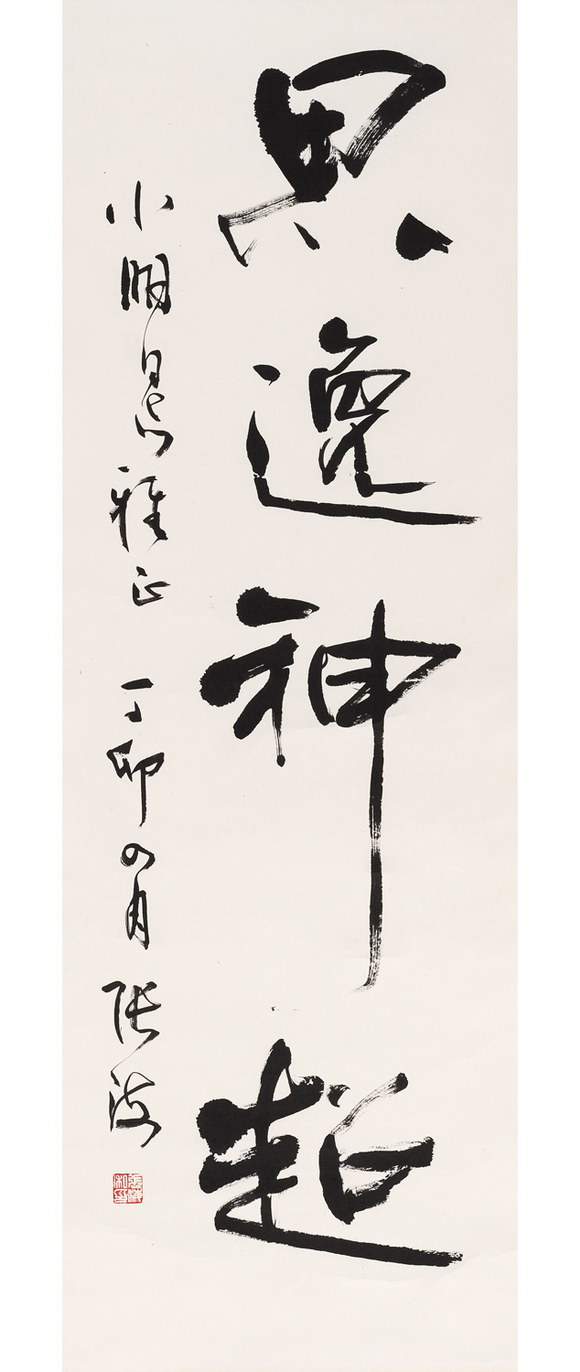 思逸神超
小明同志雅正 丁卯四月 张海